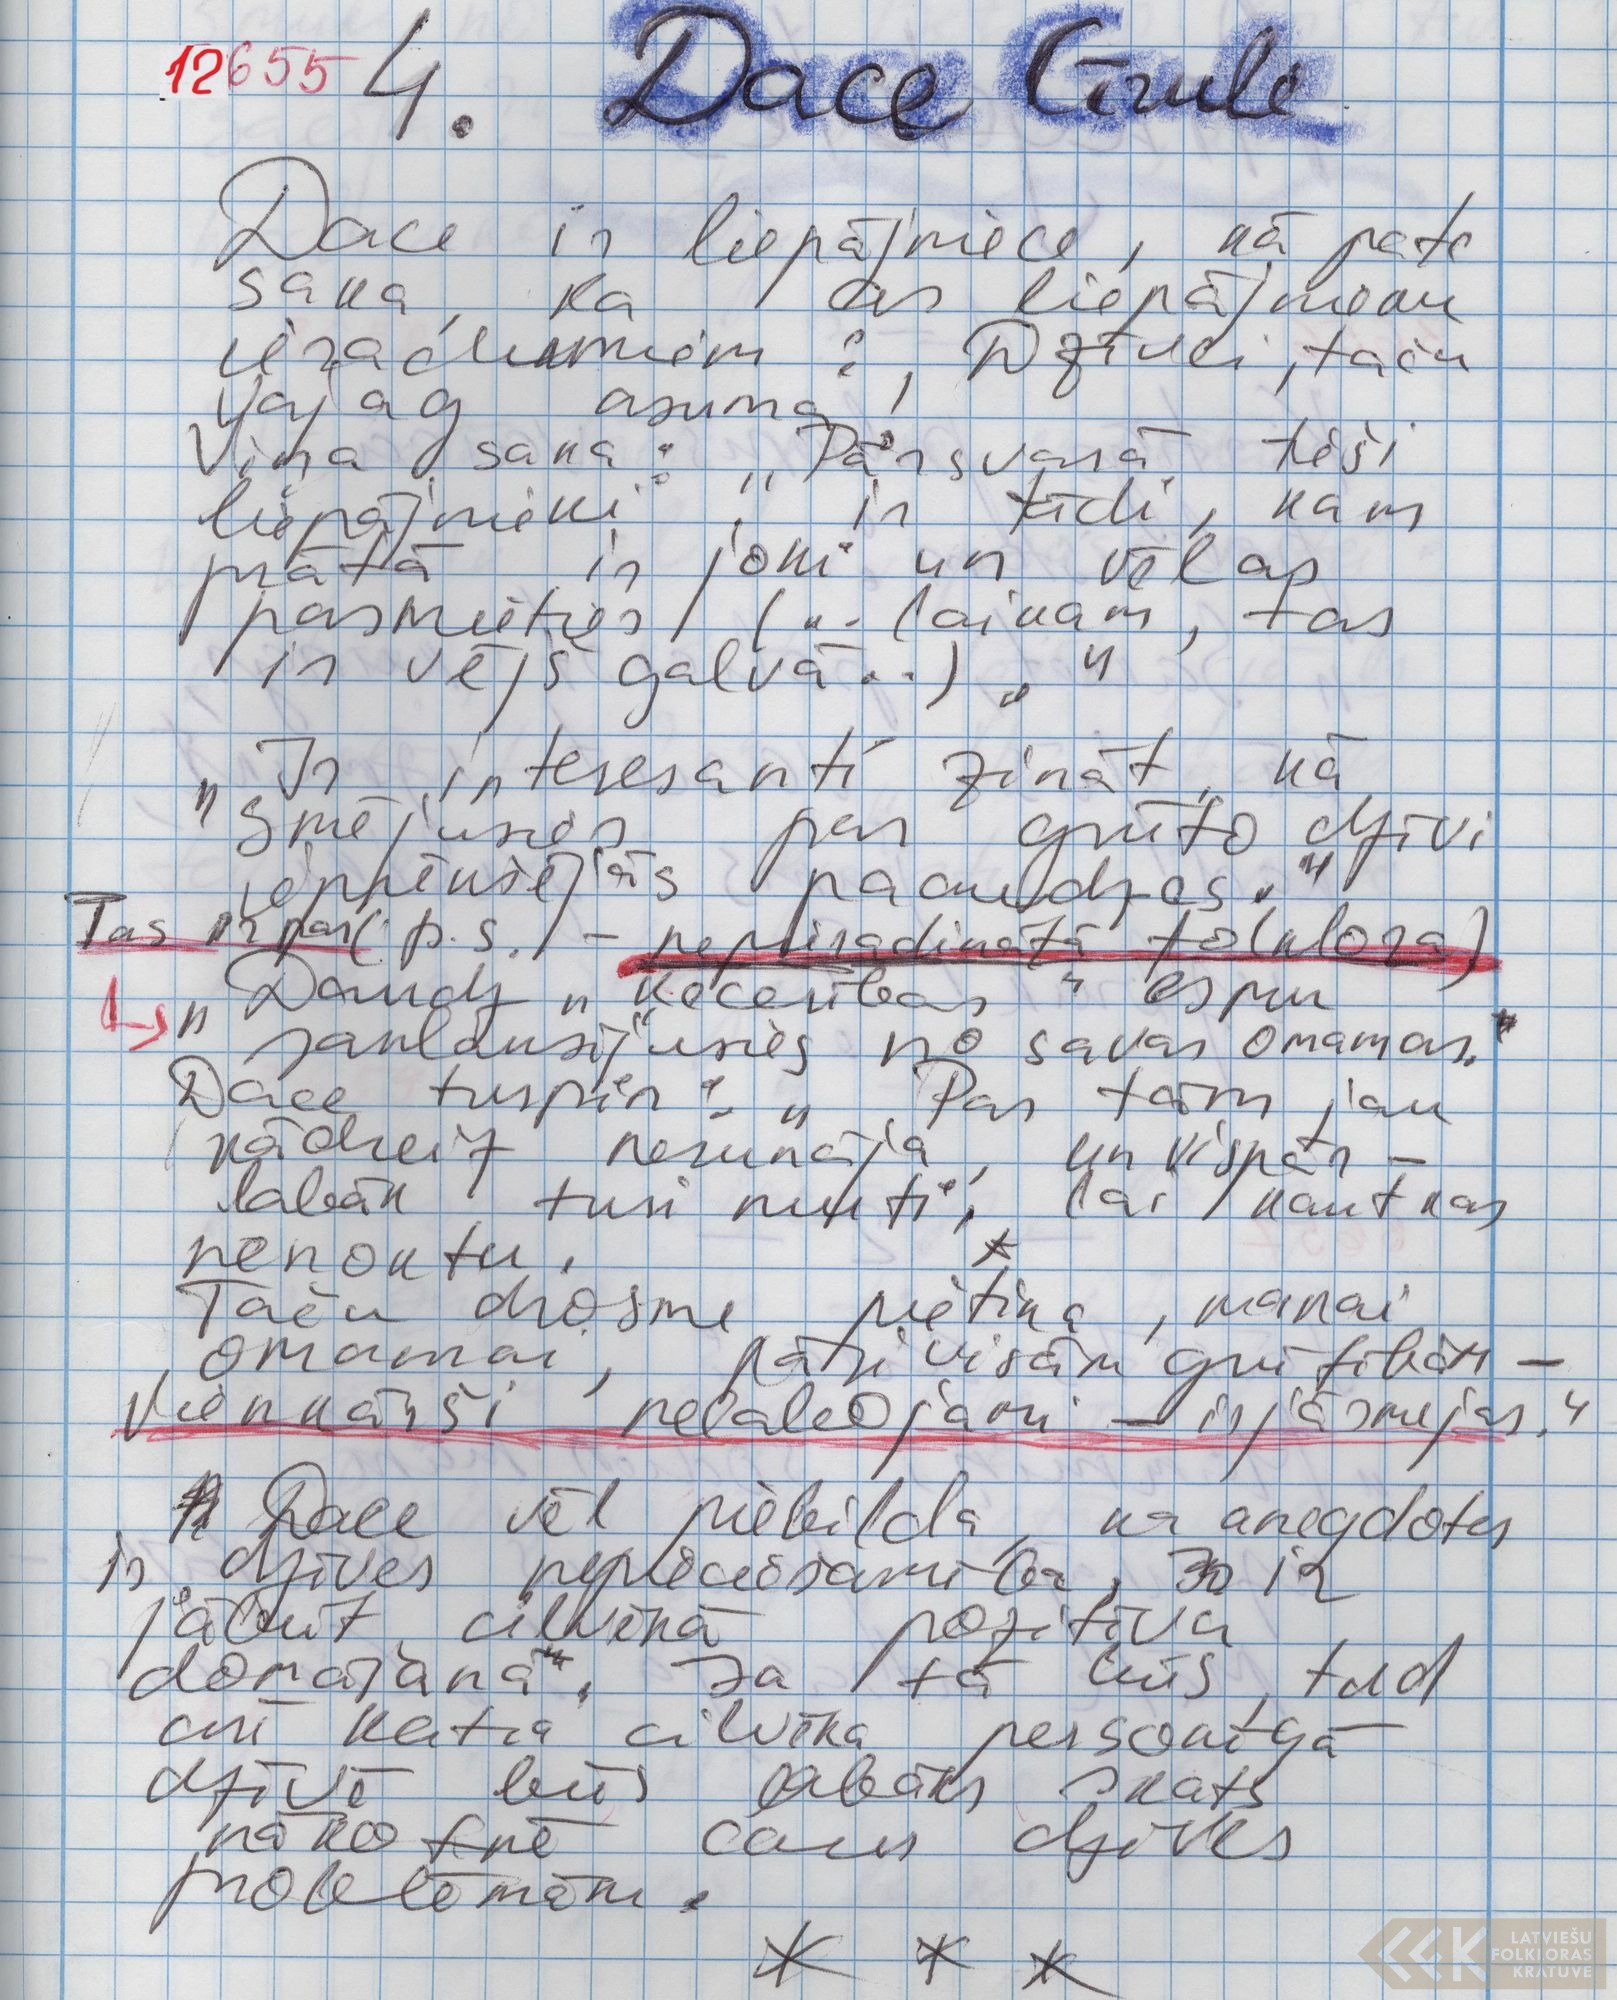 12655 4. Dace Cīrule
Dace ir liepājniece, kā pate
saka, ka as liepājnieku
: "Dzīvei, taču
vajag asuma!
Viņa saka: "Pārsvarā tieši
liepājnieki", ir tādi, kam
prātā ir joki un vēlas
pasmieties! (.. laikam, tas
ir vējš galvā...)."
"Ir interesanti zināt, kā
smējusies par grūto dzīvi
iepriekšējās paaudzes."
Tas ir par( p.s.! - nepieradinātā folklora)
↳" Daudz "ķecerības" esmu
saklausījusies no savas omamas."
Dace turpin: " Par tām jau
kādreiz nerunāja, un vispār -
labāk turi muti, lai kaut kas
nenāktu. *
Taču drosme pietika, manai
omamai, pāri visām grūtībām -
vienkārši, nelabojami - izjāsmejas."
Dace vēl piebilda, ka anegdotes
ir dzīves nepieciešamība, ir
jābūt cilvēkā pozitīva
domāšanā". Ja tā būs, tad
arī katra cilvēka personīgā
dzīvē būs labāks skats
nākotnē caur dzīves
problēmām.
* * *
LATVIEŠU
FOLKLORAS
KRĀTUVE